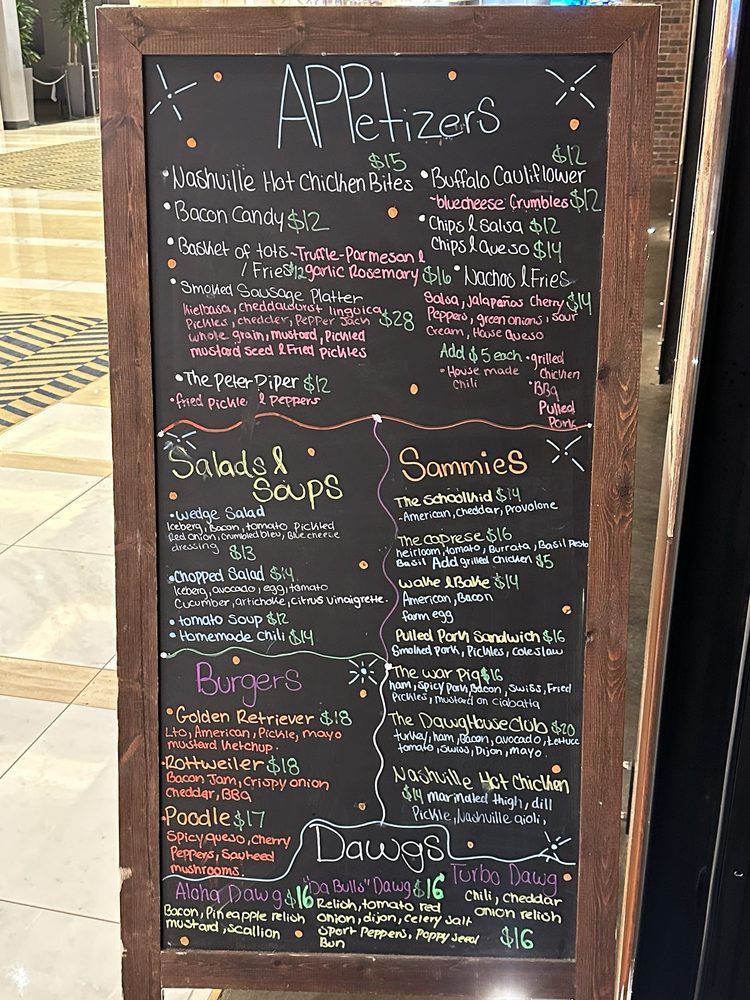 APPetizers
$15
• Nashville Hot Chicken Bites
• Bacon Candy $12
• Basket of tots ~ Truffle-Parmesan &
/ Fries $12 garlic Rosemary $16
• Smoked Sausage Platter
kielbasa, cheddarwurst linguica
Pickles, cheddar, Pepper Jack $28
whole grain, mustard, Pickled
mustard seed & Fried pickles
• The Peter Piper $12
• fried Pickle & Peppers
$12
• Buffalo Cauliflower
~bluecheese Crumbles $12
• Chips & Salsa $12
Chips & queso $14
• Nachos & Fries
Salsa, jalapeños Cherry $14
Peppers, green onions, sour
Cream, House Queso
Add $5 each • grilled
Chicken
• House made
Chili
• BBQ
Pulled
Pork
Salads &
Soups
• Wedge Salad
Iceberg, Bacon, tomato, Pickled
Red onion, crumbled bleu, Blue cheese
dressing $13
• Chopped Salad $14
Iceberg, avocado, egg, tomato
Cucumber, artichoke, citrus vinaigrette.
• tomato Soup $12
• Homemade Chili $14
Sammies
The Schoolkid $14
-American, cheddar, Provolone
The caprese $16
heirloom, tomato, Burrata, Basil Pesto
Basil Add grilled chicken $5
Wake & Bake $14
American, Bacon
farm egg
Pulled Pork Sandwich $16
Smoked pork, Pickles, coleslaw
The war Pig $16
ham, spicy pork, Bacon, Swiss, Fried
Pickles, mustard on ciabatta
The DawgHouse Club $20
turkey, ham, Bacon, avocado, lettuce
tomato, Swiss, Dijon, mayo.
Nashville Hot Chicken
$14 marinated thigh, dill
Pickle, Nashville aioli,
Burgers
• Golden Retriever $18
Lto, American, Pickle, mayo
mustard Ketchup.
• Rottweiler $18
Bacon Jam, Crispy onion
Cheddar, BBQ
• Poodle $17
Spicy queso, Cherry
Peppers, Sauteed
mushrooms.
Dawgs
Aloha Dawg $16
Bacon, Pineapple relish
mustard, scallion
"Da Bulls" Dawg $16
Relish, tomato red
onion, dijon, celery salt
Sport Peppers, Poppy seed
Bun
Turbo Dawg
Chili, cheddar
onion relish
$16